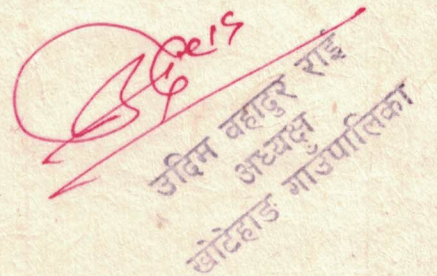 उदिम वहादुर राई
अध्यक्ष
खोटेहाङ गाउँपालिका